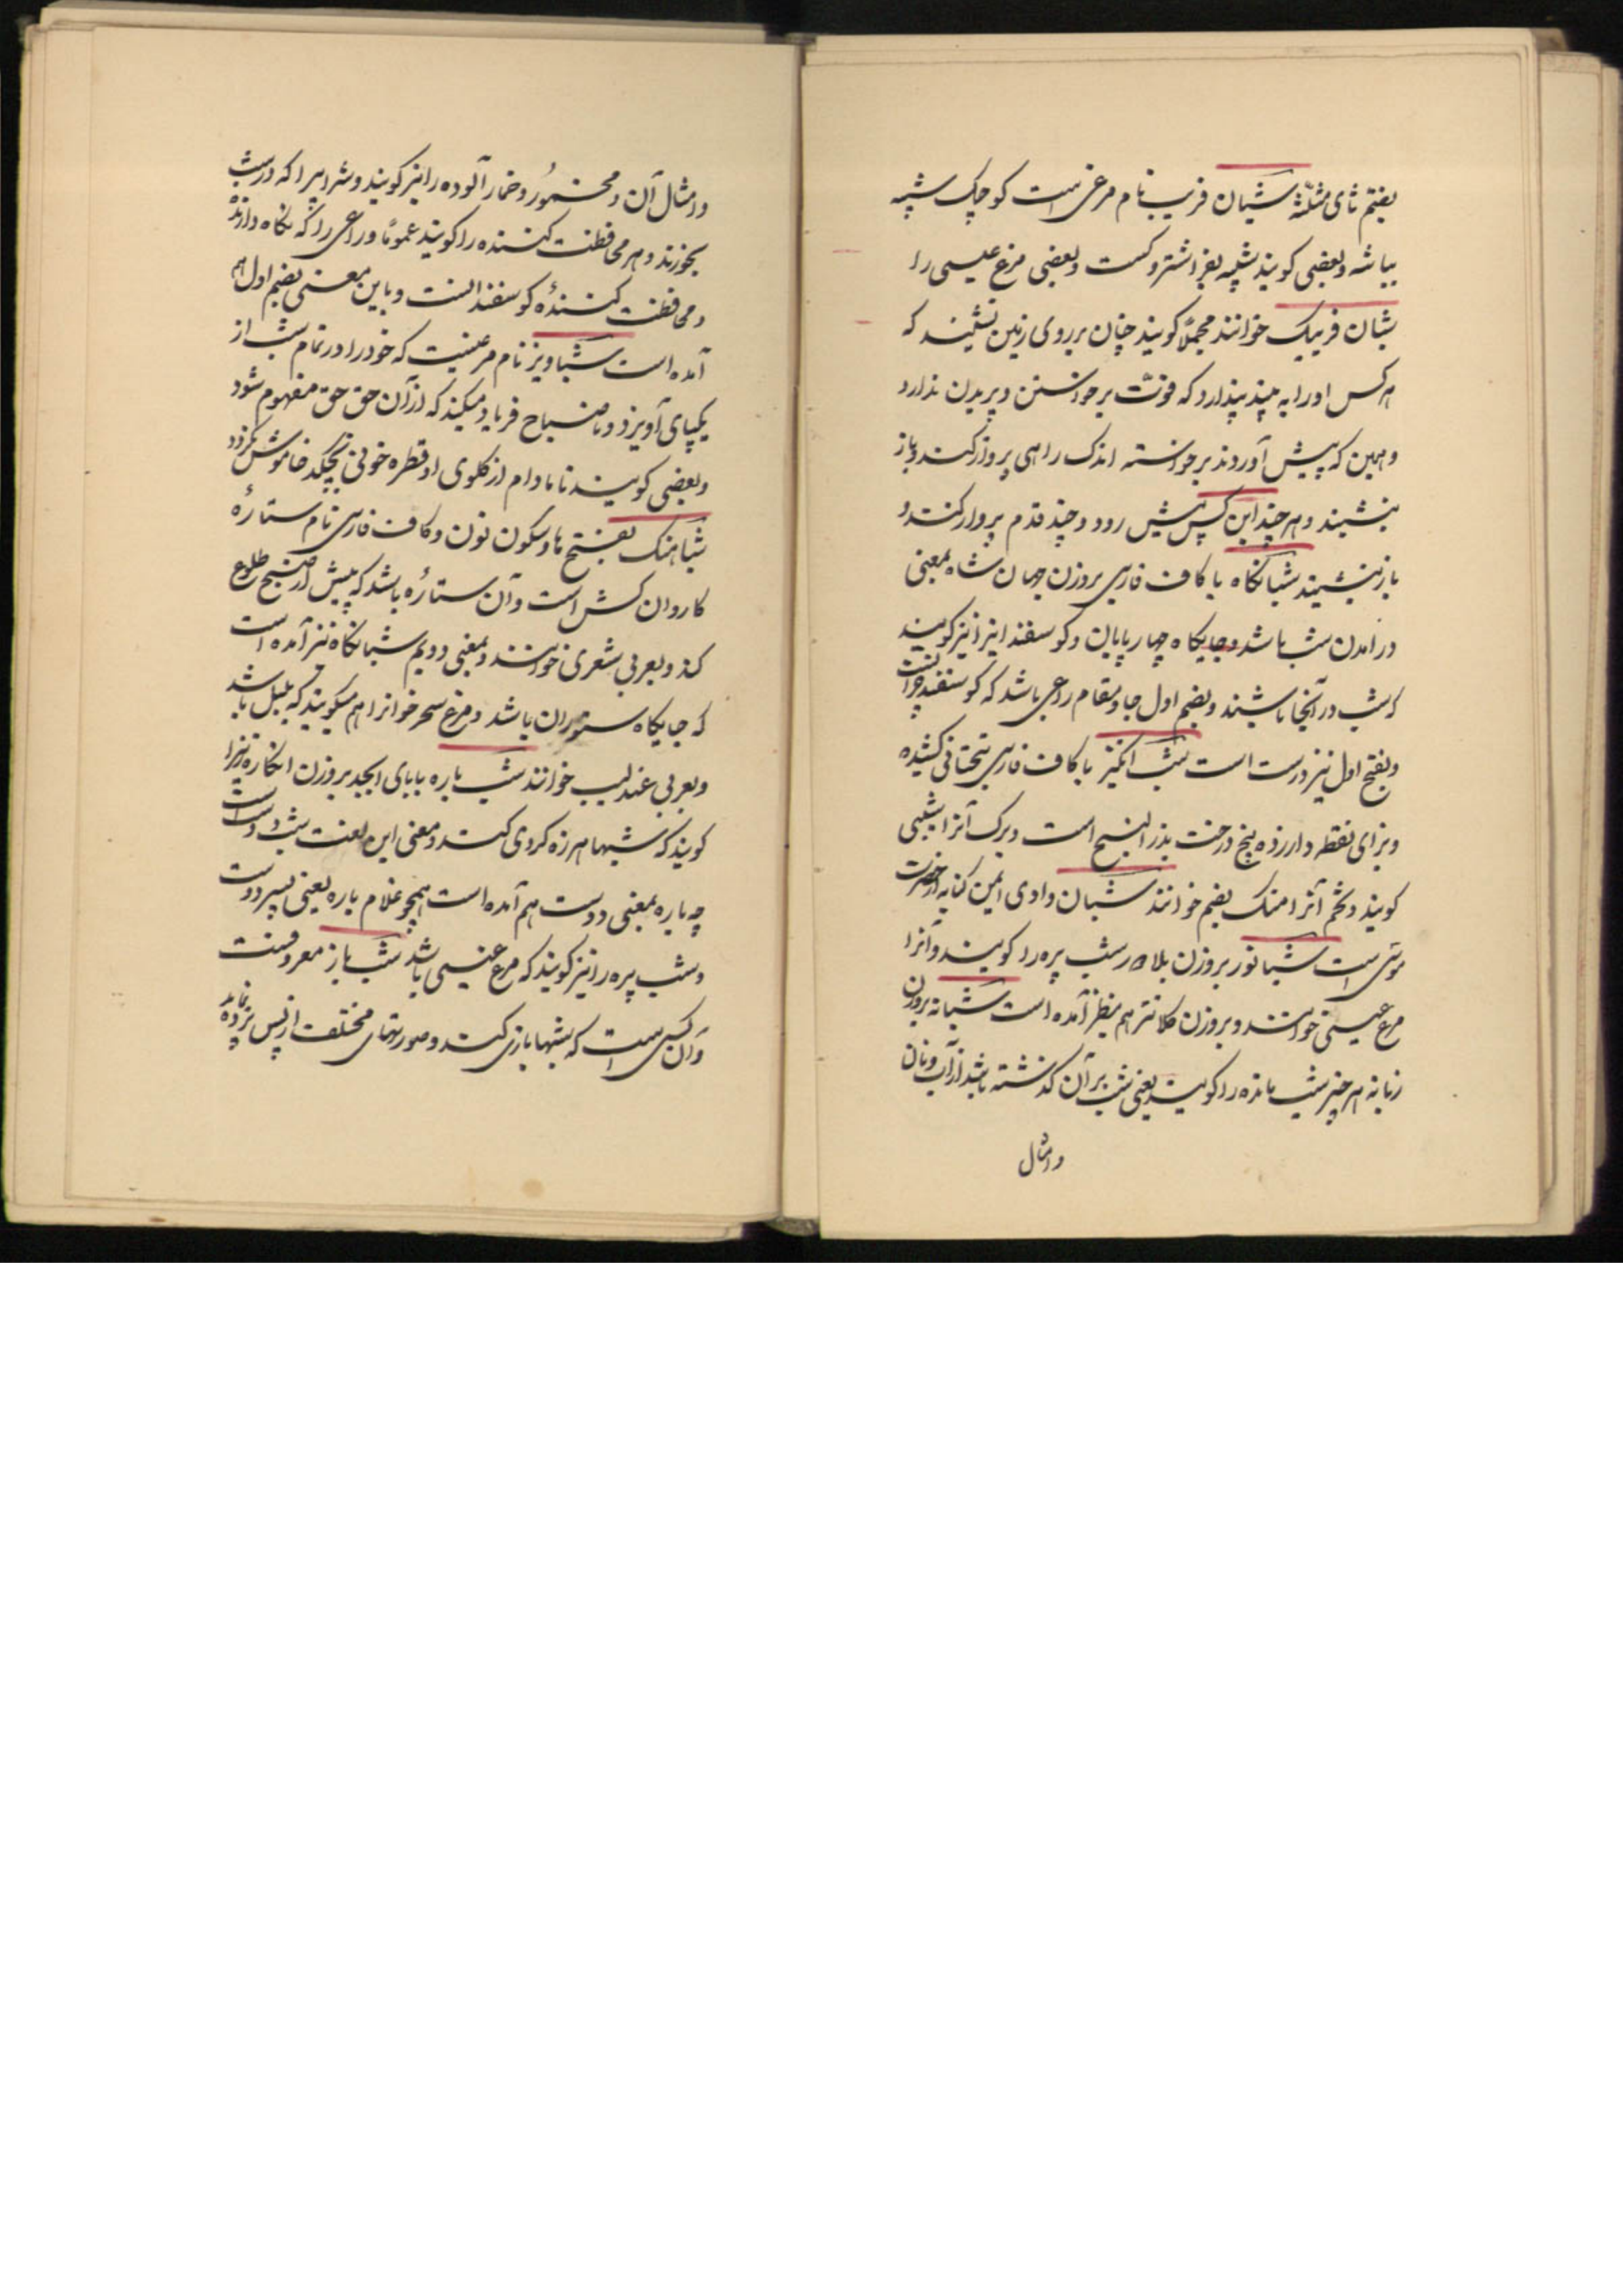 بفتح ثای مثلثه شبان فریب نام مرغی است کوچک شبیه
بباشه و بعضی کویند شبیه بفراشتروکست و بعضی مرغ عیسی را
شبان فریبک خوانند مجملاً کویند چنان بر روی زمین نشیند که
هر کس او را به بیند پندارد که قوت برخواستن و پریدن ندارد
و همین که پیش آوردند برخواسته اندک راهی پرواز کند و باز
بنشیند و هر چند این کس پیش رود و چند قدم پرواز کند و
باز بنشیند شبانکاه با کاف فارسی بروزن جهان شاه بمعنی
در آمدن شب باشد و جایکاه چهار پایان و کوسفند انرا نیز کویند
که شب در آنجا باشند و بضم اول جا و مقام راعی باشد که کوسفند چرانست
و بفتح اول نیز درست است شب انکیز با کاف فارسی بتحتانی کشیده
و بزای نقطه دار زده بیخ درخت بذر البنج است و برک آنرا شبیبی
کویند و تخم آنرا منک بضم خوانند شبان وادی ایمن کنایه از حضرت
موسی است شبانور بروزن بلادر شب پره را کویند و آنرا
مرغ عیسی خوانند و بروزن کلانتر هم بنظر آمده است شبانه بروزن
زبانه هر چیز شب مانده را کویند یعنی شب بر آن کذشته باشد از آب و نان
و امثال
و امثال آن و مخمور و خمار آلوده را نیز کویند و شرابیرا که در شب
بخورند و هر محافظت کننده را کویند عموماً و راعی را که نکاه دارنده
و محافظت کنندهٔ کوسفند انست و باین معنی بضم اول هم
آمده است شباویز نام مرغیست که خود را در تمام شب از
یکپای آویزد و تا صباح فریاد میکند که از آن حق حق مفهوم شود
و بعضی کویند تا مادام از کلوی او قطره خونی نچکد خاموش نکردد
شباهنک بفتح ها و سکون نون و کاف فارسی نام ستارهٔ
کاروان کش است و آن ستارهٔ باشد که پیش از صبح طلوع
کند و بعربی شعری خوانند و بمعنی دویم شبانکاه نیز آمده است
که جایکاه ستوران باشد و مرغ سحر خوانرا هم میکویند که بلبل باشد
و بعربی عندلیب خوانند شب باره با بای ابجد بروزن انکاره آنرا
کویند که شبها هرزه کردی کند و معنی این لغت شب دوست است
چه باره بمعنی دوست هم آمده است همچو غلام باره یعنی پسر دوست
و شب پره را نیز کویند که مرغ عیسی باشد شب باز معروفست
و آن کسی است که شبها بازی کند و صورتهای مختلف از پس پرده نماید